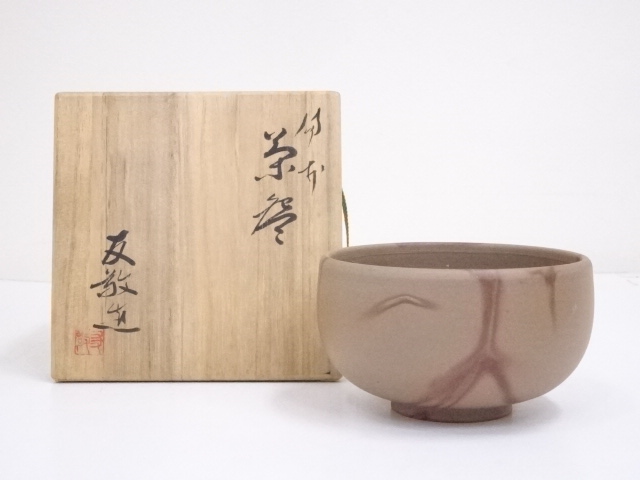 備前
茶盌
友敬造